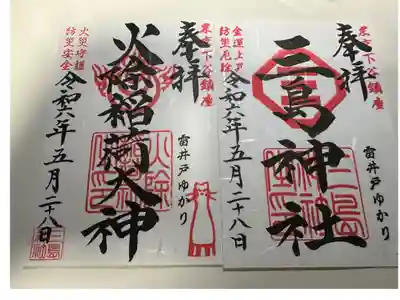 東京下谷鎮座
奉拝
三島神社
雷井戸ゆかり
金運上昇
防災厄除
令和六年五月二十八日
三島神社
東京下谷鎮座
奉拝
火除稲荷大神
雷井戸ゆかり
火災守護
防災安全
令和六年五月二十八日
火除
三島